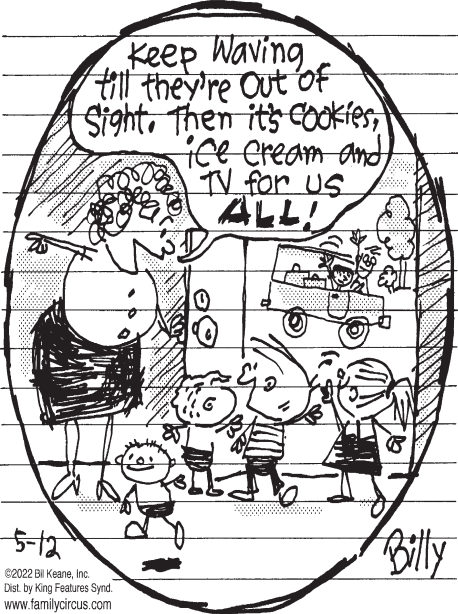 Keep Waving
till they're Out of
Sight. Then it's Cookies,
iCe Cream and
TV for us
ALL!
5-12
Billy
©2022 Bil Keane, Inc.
Dist. by King Features Synd.
www.familycircus.com